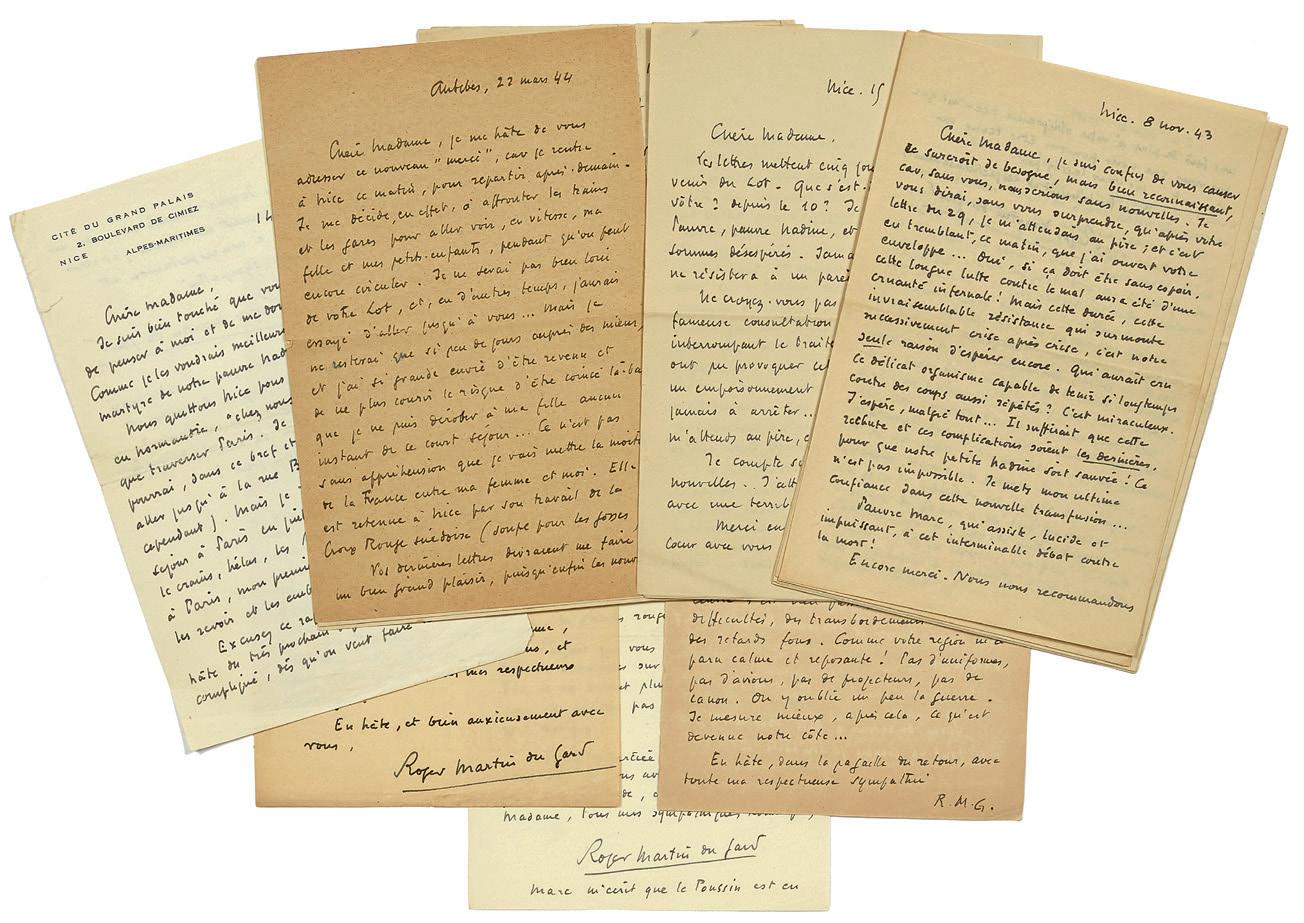 CITÉ DU GRAND PALAIS
2, BOULEVARD DE CIMIEZ
NICE ALPES-MARITIMES
14
Chère Madame,
Je suis bien touché que vou
de penser à moi et de me don
Comme je les voudrais meilleur
martyre de notre pauvre Nad
Nous quittons Nice pour
en Normandie, "chez nous
que traverser Paris. Je
pourrai, dans ce bref et
aller jusqu'à la rue B
cependant). Mais je
séjour à Paris en
Je crains, hélas, les
à Paris, mon premi
les revoir et les emb
Excusez ce
hâte du très prochain
compliqué, dès qu'on veut faire
Antibes, 22 mars 44
Chère Madame, je me hâte de vous
adresser ce nouveau "merci", car je rentre
à Nice ce matin, pour repartir après-demain.
Je me décide, en effet, à affronter les trains
et les gares pour aller voir, en vitesse, ma
fille et mes petits-enfants, pendant qu'on peut
encore circuler. Je ne serai pas bien loin
de votre Lot, et, en d'autres temps, j'aurais
essayé d'aller jusqu'à vous... Mais je
ne resterai que si peu de jours auprès des miens,
et j'ai si grande envie d'être revenu et
de ne plus courir le risque d'être coincé là-bas
que je ne puis dérober à ma fille aucun
instant de ce court séjour... Ce n'est pas
sans appréhension que je vais mettre la moiti
de la France entre ma femme et moi. Elle
est retenue à Nice par son travail de la
Croix Rouge suédoise (soupe pour les gosses)
Vos dernières lettres devraient me faire
un bien grand plaisir, puisqu'enfin les nouv
Nice. 15
Chère Madame,
Les lettres mettent cinq jou
venir du Lot. Que s'est-
vôtre? depuis le 10? Je
Pauvre, pauvre Nadine, et
sommes désespérés. Jama
ne résistera à un pareil
Ne croyez-vous pas
fameuse consultation
interrompant le trait
ont pu provoquer ce
un empoisonnement
jamais à arrêter...
m'attends au pire, c
Je compte su
nouvelles.. J'att
avec une terrib
Merci en
Cœur avec vous
Nice. 8 nov. 43
Chère Madame, je suis confus de vous causer
ce surcroît de besogne, mais bien reconnaissant,
car, sans vous, nous serions sans nouvelles. Je
vous dirai, sans vous surprendre, qu'après votre
lettre du 29, je m'attendais au pire; et c'est
en tremblant, ce matin, que j'ai ouvert votre
enveloppe... Oui, si ça doit être sans espoir,
cette longue lutte contre le mal aura été d'une
cruauté infernale! Mais cette durée, cette
invraisemblable résistance qui surmonte
successivement crise après crise, c'est notre
seule raison d'espérer encore. Qui aurait cru
ce délicat organisme capable de tenir si longtemps
contre des coups aussi répétés? C'est miraculeux.
J'espère, malgré tout... Il suffirait que cette
rechute et ces complications soient les dernières,
pour que notre petite Nadine soit sauvée! Ce
n'est pas impossible. Je mets mon ultime
confiance dans cette nouvelle transfusion...
Pauvre Marc, qui assiste, lucide et
impuissant, à cet interminable débat contre
la mort!
Encore merci. Nous nous recommandons
mes respectueux
En hâte, et bien anxieusement avec
vous,
Roger Martin du Gard
rouge
vous
sur
et plu
pas
Madame, tous mes sympathiques
Roger Martin du Gard
Marc m'écrit que le Poussin est en
difficultés, des transbordements
des retards fous. Comme votre région m'a
paru calme et reposante! Pas d'uniformes,
pas d'avions, pas de projecteurs, pas de
canon. On y oublie un peu la guerre.
Je mesure mieux, après cela, ce qu'est
devenue notre côte...
En hâte, dans la pagaille du retour, avec
toute ma respectueuse sympathie
R.M.G.